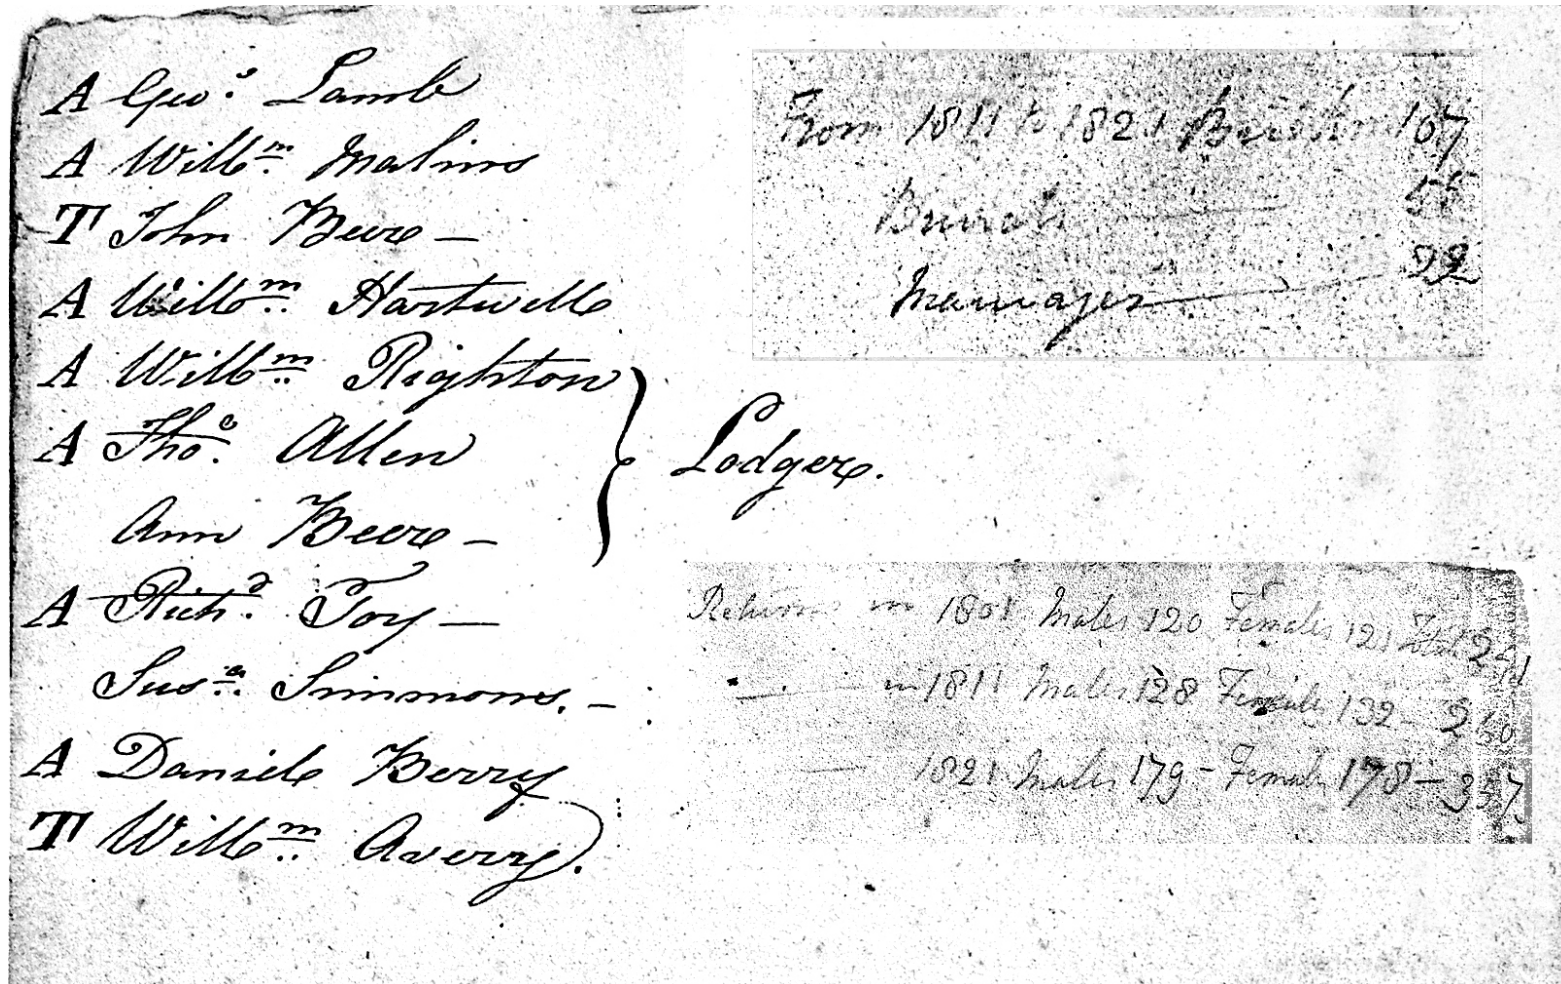 A Geo.^s Lamb
A Will^m Malins
T John Beere —
A Will^m Hartwell
A Will^m Righton
A Tho.^s Allen
Ann Beere —
Lodgers.
A Rich.^d Toy —
Sus.^a Simmons. —
A Daniel Berry
T Will^m Avery.
From 1811 to 1821 107
Burials 55
Marriages 22
Returns in 1801 Males 120 Females 121 Total 241
— in 1811 Males 128 Females 132 — 260
— 1821 Males 179 – Females 178 — 357